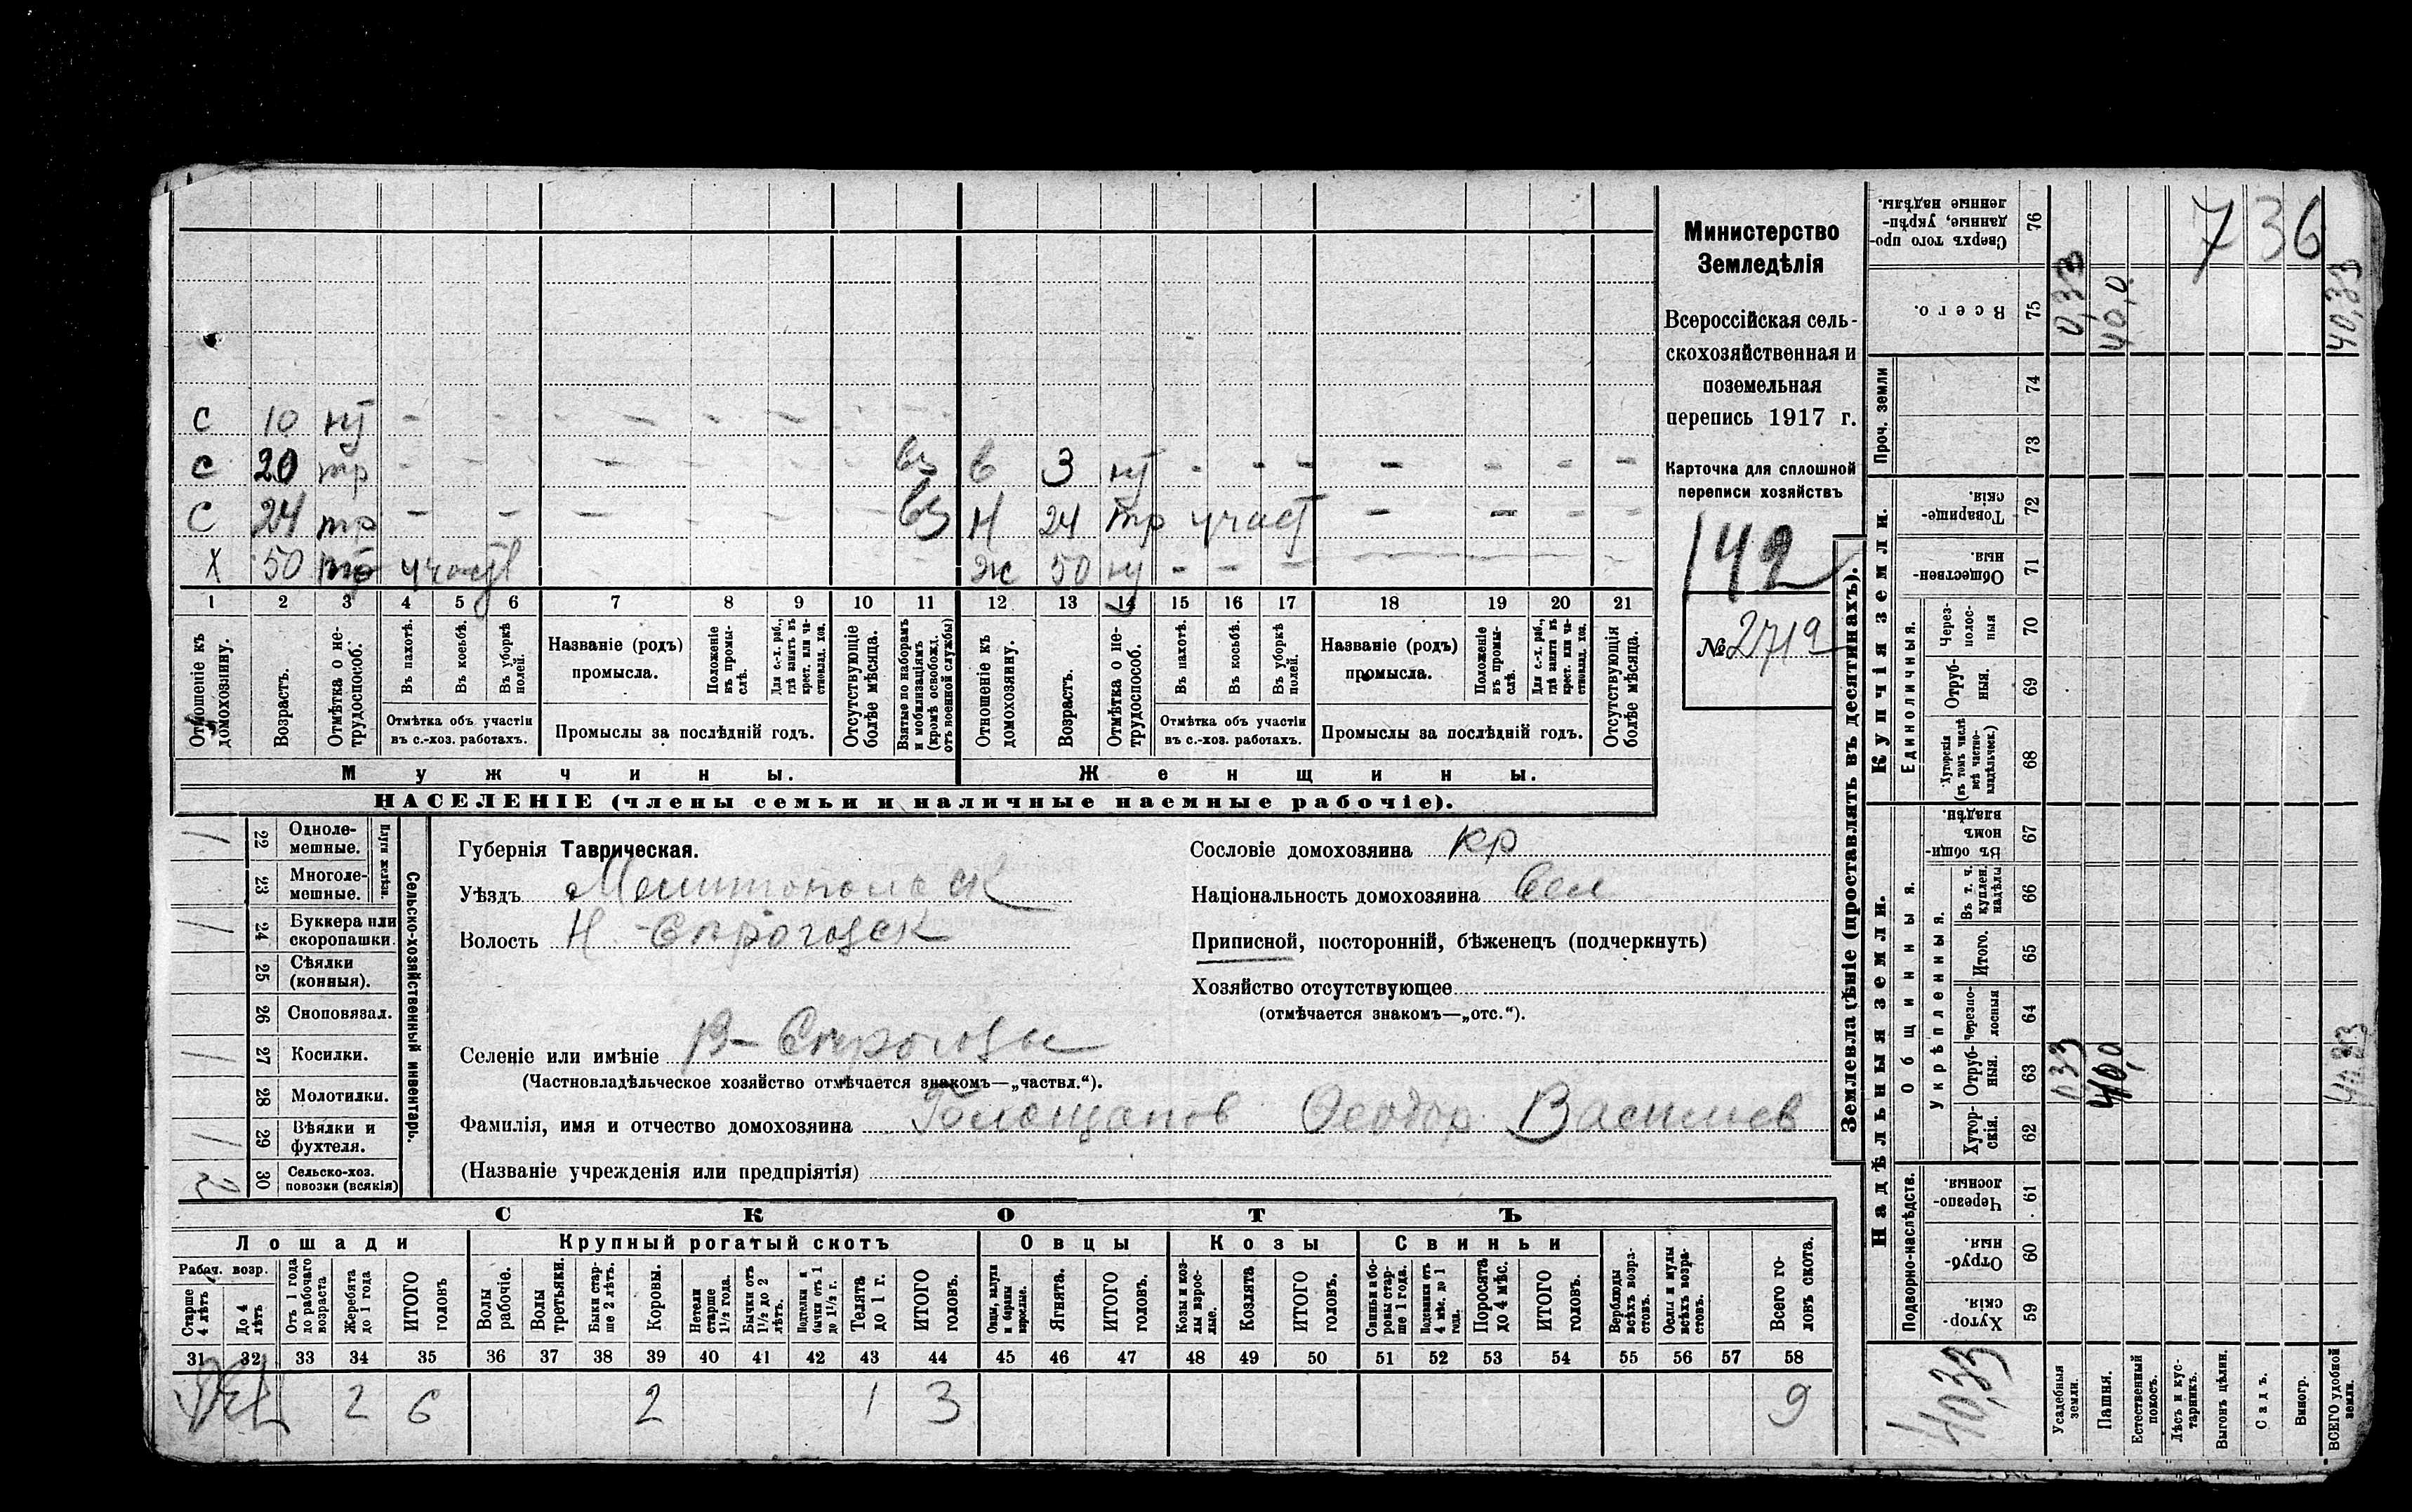 С 10 нт - - - - - - - -
С 20 тр - - - - - - - вз в 3 нт - - - - - - -
С 24 тр - - - - - - - вз Н 24 тр участ - - - -
Х 50 участ Ж 50 нт - - -
1 2 3 4 5 6 7 8 9 10 11 12 13 14 15 16 17 18 19 20 21
Отношеніе къ домохозяину.
Возрастъ.
Отмѣтка о нетрудоспособ.
Въ пахотѣ.
Въ косьбѣ.
Въ уборкѣ полей.
Отмѣтка объ участіи
въ с.-хоз. работахъ.
Названіе (родъ)
промысла.
Положеніе въ промыслѣ.
Для с.-х. раб., гдѣ занятъ въ крест. или частновлад. хоз.
Промыслы за послѣдній годъ.
Отсутствующіе болѣе мѣсяца.
Взятые по наборамъ и мобилизаціямъ (кромѣ освобожд. отъ военной службы)
Отношеніе къ домохозяину.
Возрастъ.
Отмѣтка о нетрудоспособ.
Въ пахотѣ.
Въ косьбѣ.
Въ уборкѣ полей.
Отмѣтка объ участіи
въ с.-хоз. работахъ.
Названіе (родъ)
промысла.
Положеніе въ промыслѣ.
Для с.-х. раб., гдѣ занята въ крест. или частновлад. хоз.
Промыслы за послѣдній годъ.
Отсутствующія болѣе мѣсяца.
Мужчины. Женщины.
НАСЕЛЕНІЕ (члены семьи и наличные наемные рабочіе).
Министерство
Земледѣлія
Всероссійская сель-
скохозяйственная и
поземельная
перепись 1917 г.
Карточка для сплошной
переписи хозяйствъ
142
№ 2719
Сельско-хозяйственный инвентарь.
Плуги желѣзн.
1 22 Одноле-
мешные.
23 Многоле-
мешные.
1 24 Буккера или
скоропашки.
25 Сѣялки
(конныя).
26 Сноповязал.
1 27 Косилки.
28 Молотилки.
1 29 Вѣялки и
фухтеля.
2 30 Сельско-хоз.
повозки (всякія)
Губернія Таврическая.
Уѣздъ Мелитопольск
Волость Н-Сѣрогозск
Селеніе или имѣніе В-Сѣрогозы
(Частновладѣльческое хозяйство отмѣчается знакомъ—„частвл.“).
Фамилія, имя и отчество домохозяина Ѳеодор Васильев
(Названіе учрежденія или предпріятія)
Сословіе домохозяина кр
Національность домохозяина вел
Приписной, посторонній, бѣженецъ (подчеркнуть)
Хозяйство отсутствующее
(отмѣчается знакомъ—„отс.“).
СКОТЪ
Лошади Крупный рогатый скотъ Овцы Козы Свиньи
Рабоч. возр.
Старше 4 лѣтъ
До 4 лѣтъ
Отъ 1 года до рабочаго возраста
Жеребята до 1 года
ИТОГО головъ
Волы рабочіе.
Волы третьяки.
Быки старше 2 лѣтъ.
Коровы.
Нетели старше 1½ года.
Бычки отъ 1½ до 2 лѣтъ.
Подтелки и бычки отъ 1 до 1½ г.
Телята до 1 г.
ИТОГО головъ.
Овцы, валухи и бараны взрослые.
Ягнята.
ИТОГО головъ.
Козы и козлы взрослые.
Козлята
ИТОГО головъ.
Свиньи и боровы старше 1 года.
Подсвинки отъ 4 мѣс. до 1 года.
Поросята до 4 мѣс.
ИТОГО головъ.
Верблюды всѣхъ возрастовъ.
Ослы и мулы всѣхъ возрастовъ.
Всего головъ скота.
31 32 33 34 35 36 37 38 39 40 41 42 43 44 45 46 47 48 49 50 51 52 53 54 55 56 57 58
2 6 2 1 3 9
Землевладѣніе (проставлять въ десятинахъ).
Надѣльныя земли. Купчія земли. Проч. земли
Подворно-наслѣдств.
Общинныя.
Укрѣпленныя.
Единоличныя.
Хуторскія. 59
Отрубныя. 60
Черезполосныя. 61
Хуторскія. 62
Отрубныя. 63
Черезполосныя 64
Итого. 65
Въ т. ч. куплен. надѣлы 66
Въ общинномъ владѣн. 67
Хуторскія (въ томъ числѣ всѣ частновладѣльческ.) 68
Отрубныя. 69
Черезполосныя 70
Общественныя 71
Товарищескія. 72
73
74
Всего. 75
Сверхъ того проданные, укрѣпленные надѣлы. 76
40,33
Усадебныя земли. 0,33 0,33
Пашня. 40,0 40,0
Естественный покосъ.
Лѣсъ и кустарникъ.
Выгонъ цѣлин.
Садъ.
Виногр.
ВСЕГО удобной земли. 40,33 40,33
736